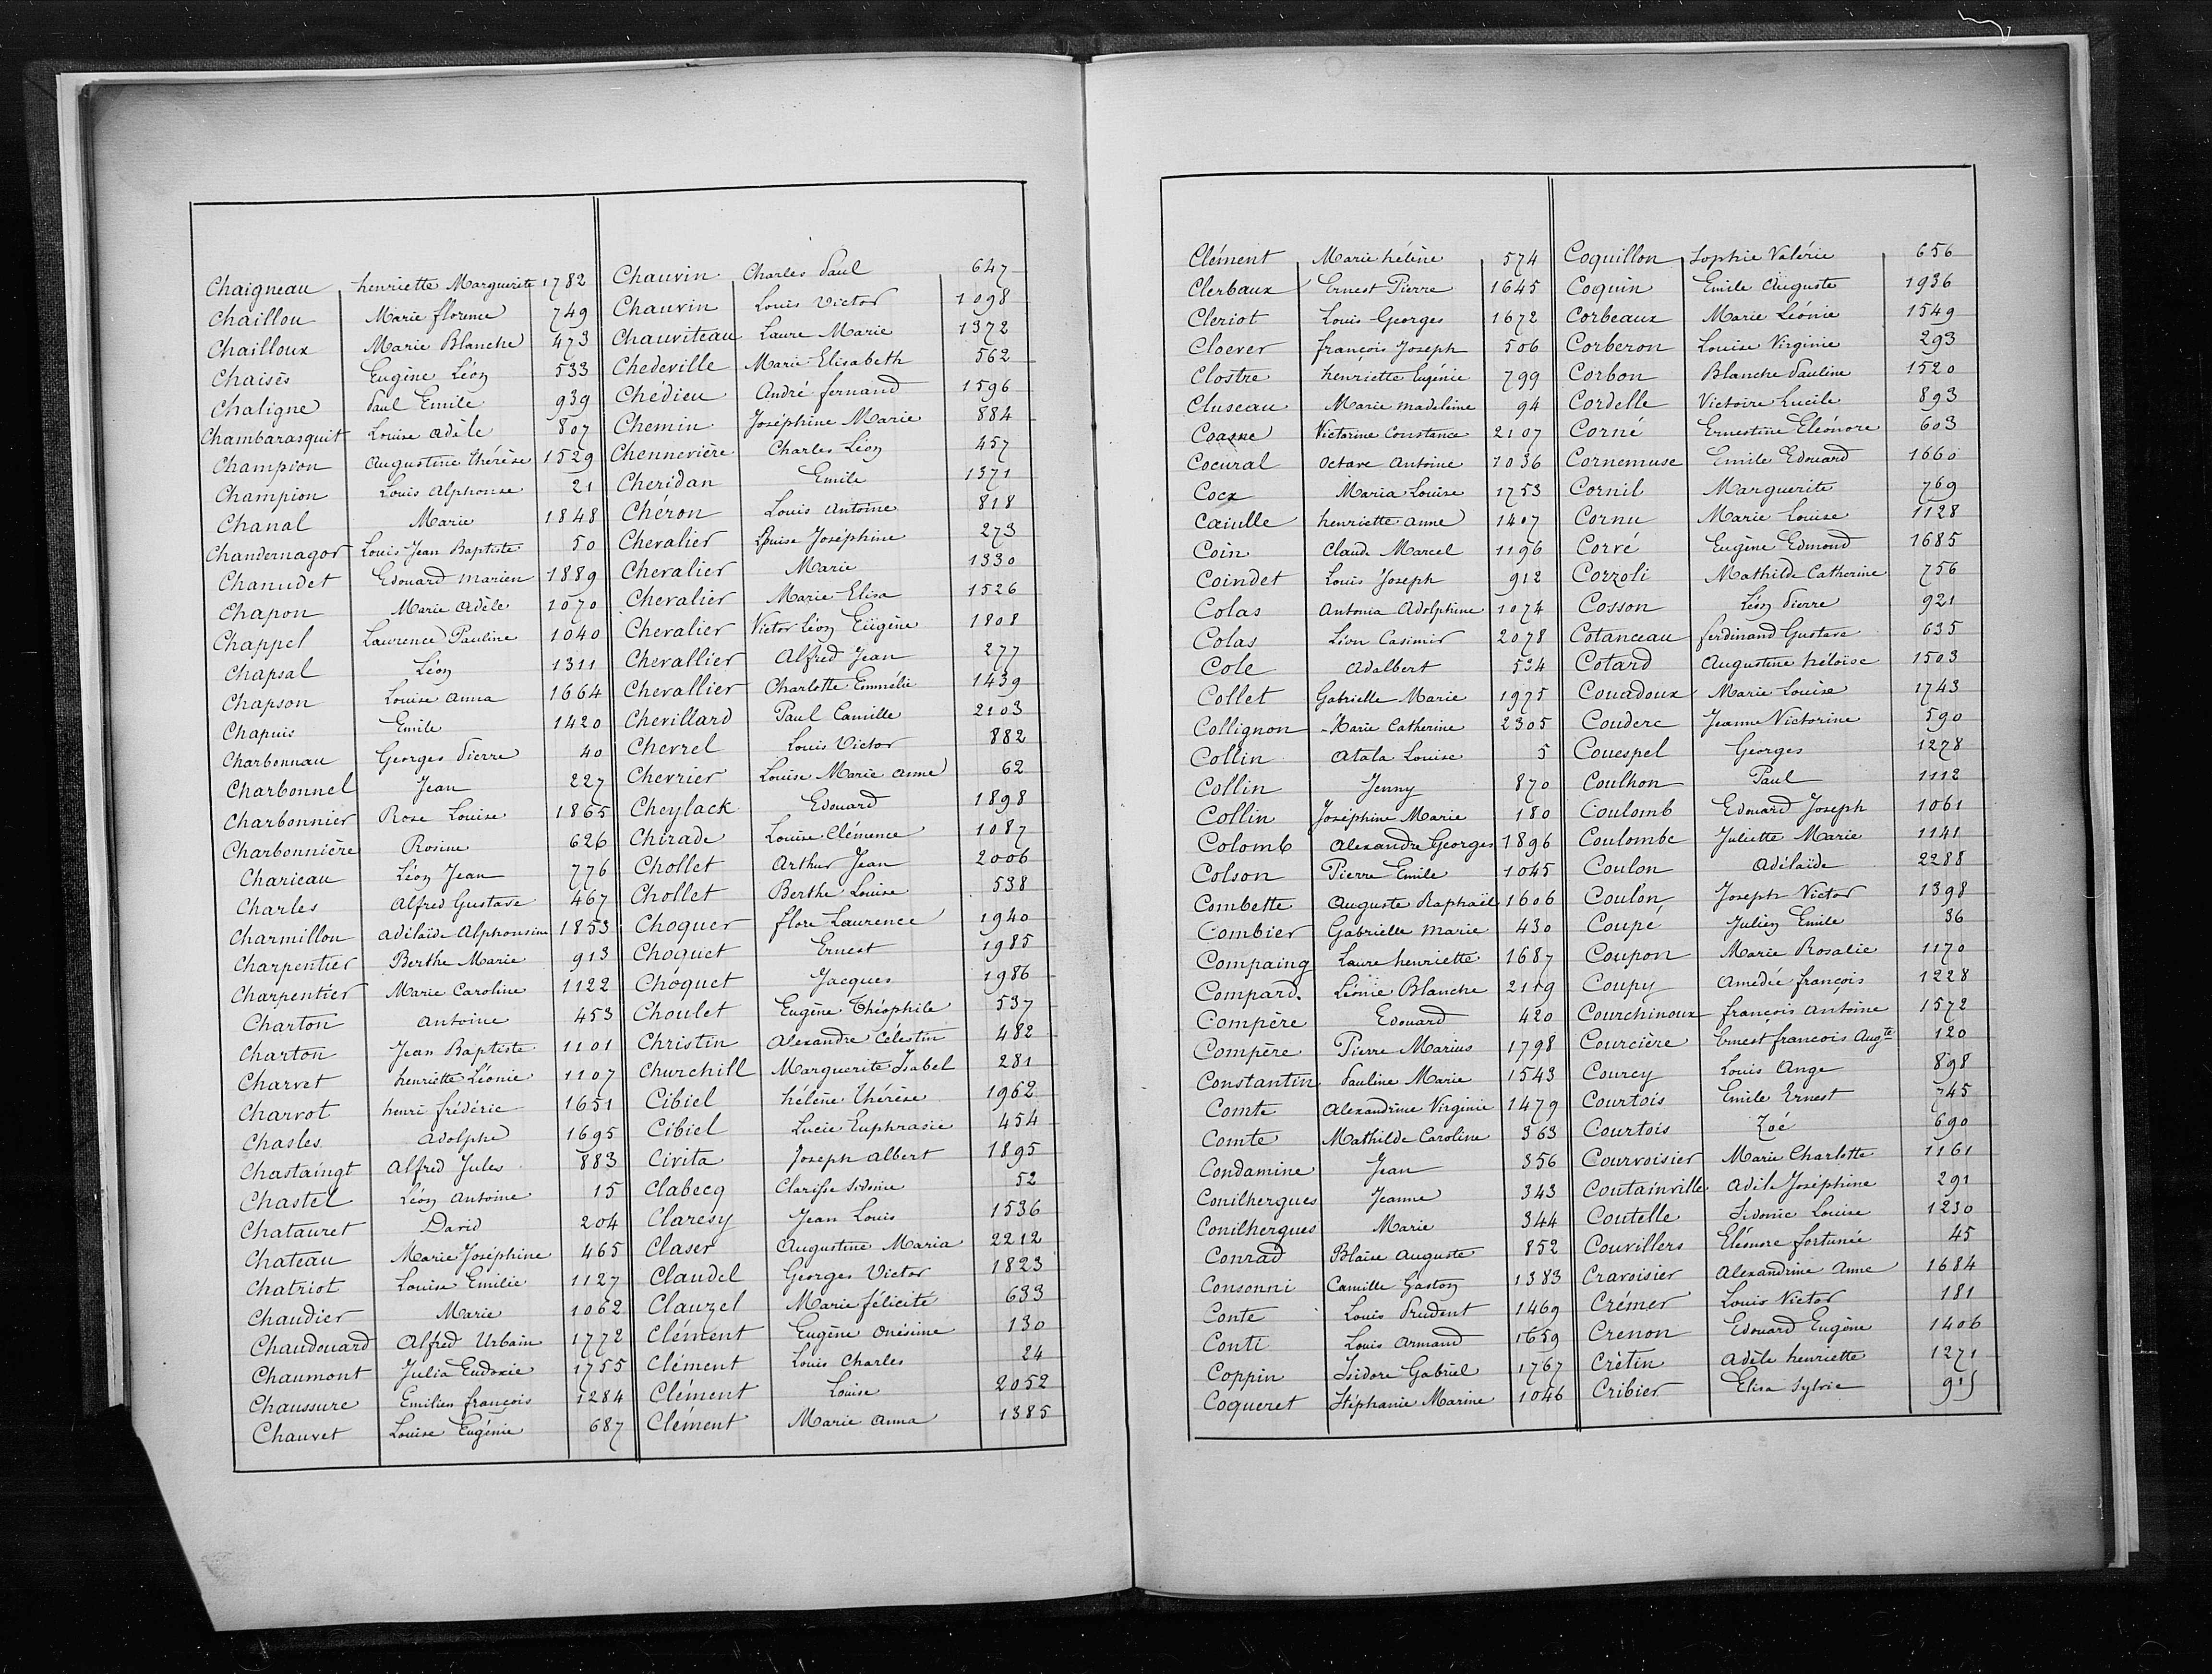 Chaigneau henriette Marguerite 1782
Chaillou Marie florence 749
Chailloux Marie Blanche 473
Chaisès Eugène Léon 533
Chaligne Paul Emile 939
Chambarasquit Louise Adèle 807
Champion Augustine thérèse 1529
Champion Louis Alphonse 21
Chanal Marie 1848
Chandernagor Louis Jean Baptiste 50
Chanudet Edouard Marien 1889
Chapon Marie Adèle 1070
Chappel Laurence Pauline 1040
Chapsal Léon 1311
Chapson Louise Anna 1664
Chapuis Emile 1420
Charbonnau Georges Pierre 40
Charbonnel Jean 227
Charbonnier Rose Louise 1865
Charbonnière Rosine 626
Charieau Léon Jean 776
Charles Alfred Gustave 467
Charmillon Adélaïde Alphonsine 1853
Charpentier Berthe Marie 913
Charpentier Marie Caroline 1122
Charton Antoine 453
Charton Jean Baptiste 1101
Charvet henriette Léonie 1107
Charvot henri frédéric 1651
Chasles Adolphe 1695
Chastaingt Alfred Jules 883
Chastel Léon Antoine 15
Chatauret David 204
Chateau Marie Joséphine 465
Chatriot Louise Emilie 1127
Chaudier Marie 1062
Chaudouard Alfred Urbain 1772
Chaumont Julia Eudoxie 1755
Chaussure Emilien françois 1284
Chauvet Louise Eugénie 687
Chauvin Charles Paul 647
Chauvin Louis Victor 1098
Chauviteau Laure Marie 1372
Chedeville Marie Elisabeth 562
Chédieu André fernand 1596
Chemin Joséphine Marie 884
Chennevière Charles Léon 457
Cheridan Emile 1371
Chéron Louis Antoine 818
Chevalier Louise Joséphine 273
Chevalier Marie 1330
Chevalier Marie Elisa 1526
Chevalier Victor Léon Eugène 1808
Chevallier Alfred Jean 277
Chevallier Charlotte Emmélie 1439
Chevillard Paul Camille 2103
Chevrel Louis Victor 882
Chevrier Louise Marie Anne 62
Cheylack Edouard 1898
Chirade Louise Clémence 1087
Chollet Arthur Jean 2006
Chollet Berthe Louise 538
Choquer flore Laurence 1940
Choquet Ernest 1985
Choquet Jacques 1986
Choulet Eugène Théophile 537
Christin Alexandre Célestin 482
Churchill Marguerite Isabel 281
Cibiel hélène thérèse 1962
Cibiel Lucie Euphrasie 454
Civita Joseph Albert 1895
Clabecq Clarisse Sidonie 52
Claresy Jean Louis 1536
Claser Augustine Maria 2212
Claudel Georges Victor 1823
Clauzel Marie félicité 633
Clément Eugène Onésime 130
Clément Louis Charles 24
Clément Louise 2052
Clément Marie Anna 1385
Clément Marie hélène 574
Clerbaux Ernest Pierre 1645
Cleriot Louis Georges 1672
Cloever françois Joseph 506
Clostre henriette Eugénie 799
Cluseau Marie Madeleine 94
Victorine Constance 2107
Cocural Octave Antoine 1036
Cocx Maria Louise 1753
henriette Anne 1407
Coin Claude Marcel 1196
Coindet Louis Joseph 912
Colas Antonia Adolphine 1074
Colas Léon Casimir 2078
Colé Adalbert 534
Collet Gabrielle Marie 1975
Collignon Marie Catherine 2305
Collin Atala Louise 5
Collin Jenny 870
Collin Joséphine Marie 180
Colomb Alexandre Georges 1896
Colson Pierre Emile 1045
Combette Auguste Raphaël 1606
Combier Gabrielle Marie 430
Compaing Laure henriette 1687
Compard Léonie Blanche 2119
Compère Edouard 420
Compère Pierre Marius 1798
Constantin Pauline Marie 1543
Comte Alexandrine Virginie 1479
Comte Mathilde Caroline 363
Condamine Jean 356
Conilhergues Jeanne 343
Conilhergues Marie 344
Conrad Blaise Auguste 852
Consonni Camille Gaston 1383
Conte Louis Prudent 1469
Conte Louis Armand 1659
Coppin Isidore Gabriel 1767
Coqueret Stéphanie Marine 1046
Coquillon Sophie Valérie 656
Coquin Emile Auguste 1936
Corbeaux Marie Léonie 1549
Corberon Louise Virginie 293
Corbon Blanche Pauline 1520
Cordelle Victoire Lucile 893
Corné Ernestine Eléonore 603
Cornemuse Emile Edouard 1660
Cornil Marguerite 769
Cornu Marie Louise 1128
Corvé Eugène Edmond 1685
Corzoli Mathilde Catherine 756
Cosson Léon Pierre 921
Cotanceau ferdinand Gustave 635
Cotard Augustine héloïse 1503
Couadoux Marie Louise 1743
Couderc Jeanne Victorine 590
Couespel Georges 1278
Coulhon Paul 1112
Coulomb Edouard Joseph 1061
Coulombe Juliette Marie 1141
Coulon Adélaïde 2288
Coulon Joseph Victor 1398
Coupé Julien Emile 36
Coupon Marie Rosalie 1170
Coupy Amédée françois 1228
Courchinoux françois Antoine 1572
Courcière Ernest françois Augte 120
Courcy Louis Ange 898
Courtois Emile Ernest 745
Courtois Zoé 690
Courvoisier Marie Charlotte 1161
Coutainville Adèle Joséphine 291
Coutelle Sidonie Louise 1230
Couvillers Eléonore fortunée 45
Cravoisier Alexandrine Anne 1684
Crémer Louis Victor 181
Crenon Edouard Eugène 1406
Crétin Adèle henriette 1271
Cribier Elisa Sylvie 915